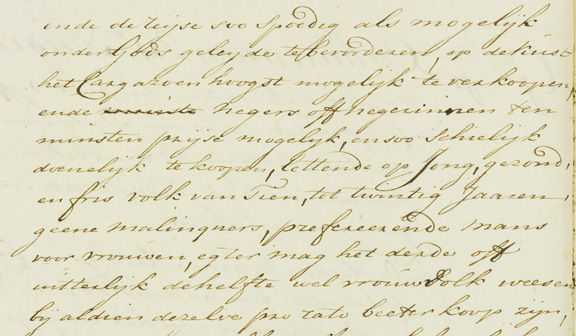 ende de reijse soo spoedig als mogelijk
onder Gods geleyde te bevorderen, op de kust
het Cargazoen hoogst mogelijk te verkoopen,
ende negers off negerinnen ten
minsten prijse mogelijk, en soo schielijk
doenelijk te koopen, lettende op Jong, gezond,
en fris volk van Tien, tot twintig Jaaren,
geene malinquers, prefereerende mans
voor vrouwen, egter mag het derde off
uitterlijk de helfte wel vrouw Volk weesen
bij aldien dezelve pro rato beeter koop zijn,